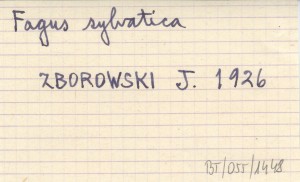 Fagus sylvatica
ZBOROWSKI J. 1926
BT/OST/1448